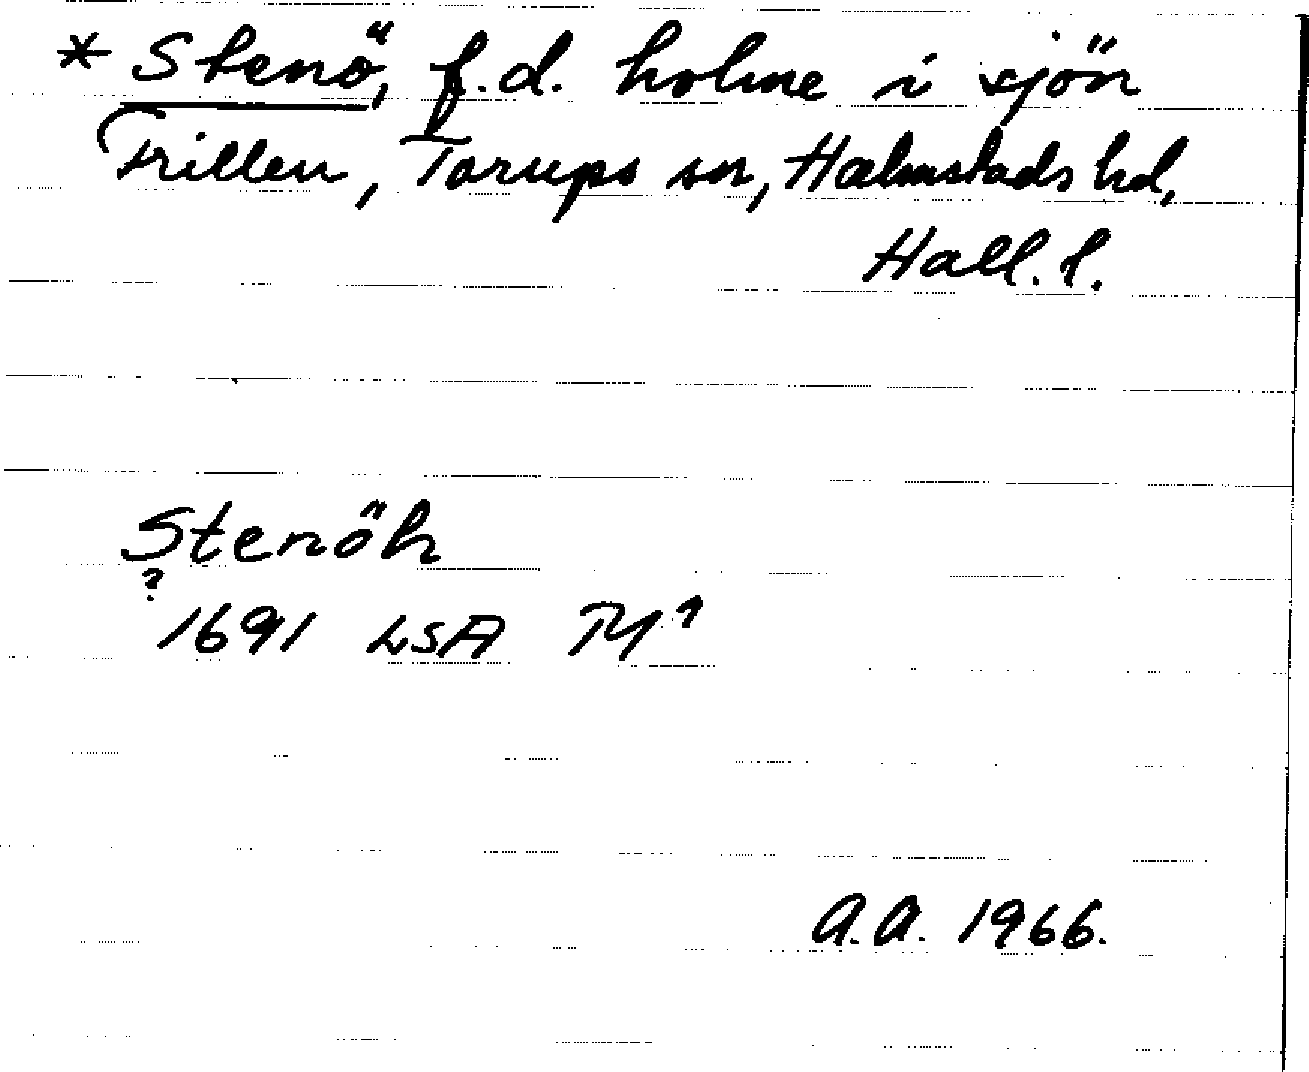 * Stenö, f.d. holme i sjön
Frillen, Torups sn, Halmstads hd,
Hall. l.
Stenöh
?
1691 LSA
A.A. 1966.